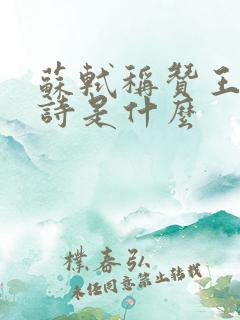 蘇軾稱贊王
詩是什麼
樸春弘
未任同意禁止轉載